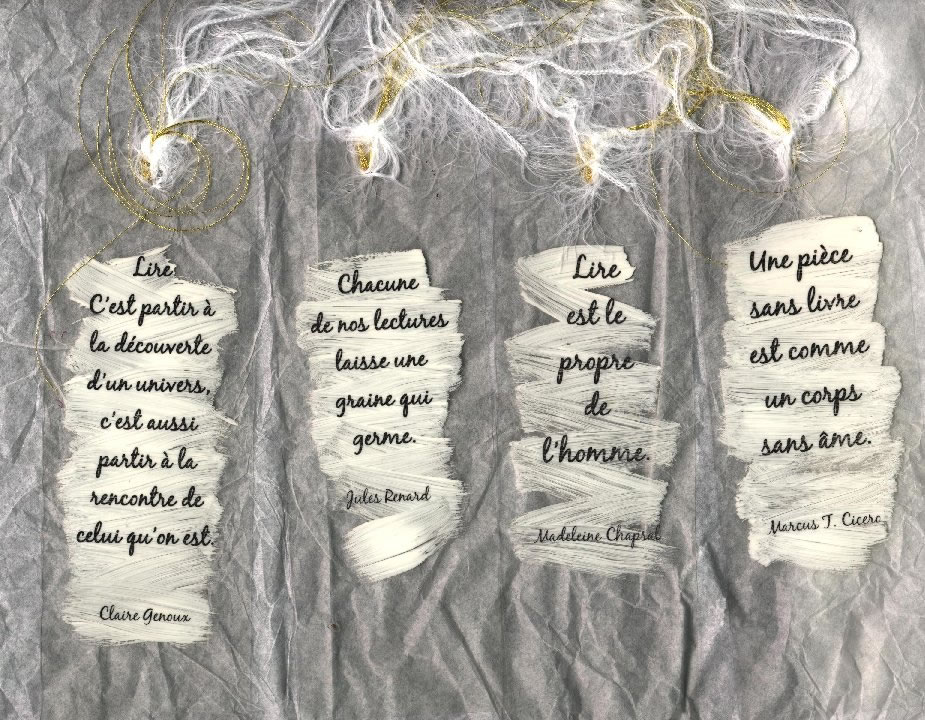 Lire
C'est partir à
la découverte
d'un univers,
c'est aussi
partir à la
rencontre de
celui qu'on est.
Claire Genoux
Chacune
de nos lectures
laisse une
graine qui
germe.
Jules Renard
Lire
est le
propre
de
l'homme.
Madeleine Chapsal
Une pièce
sans livre
est comme
un corps
sans âme.
Marcus T. Cicero